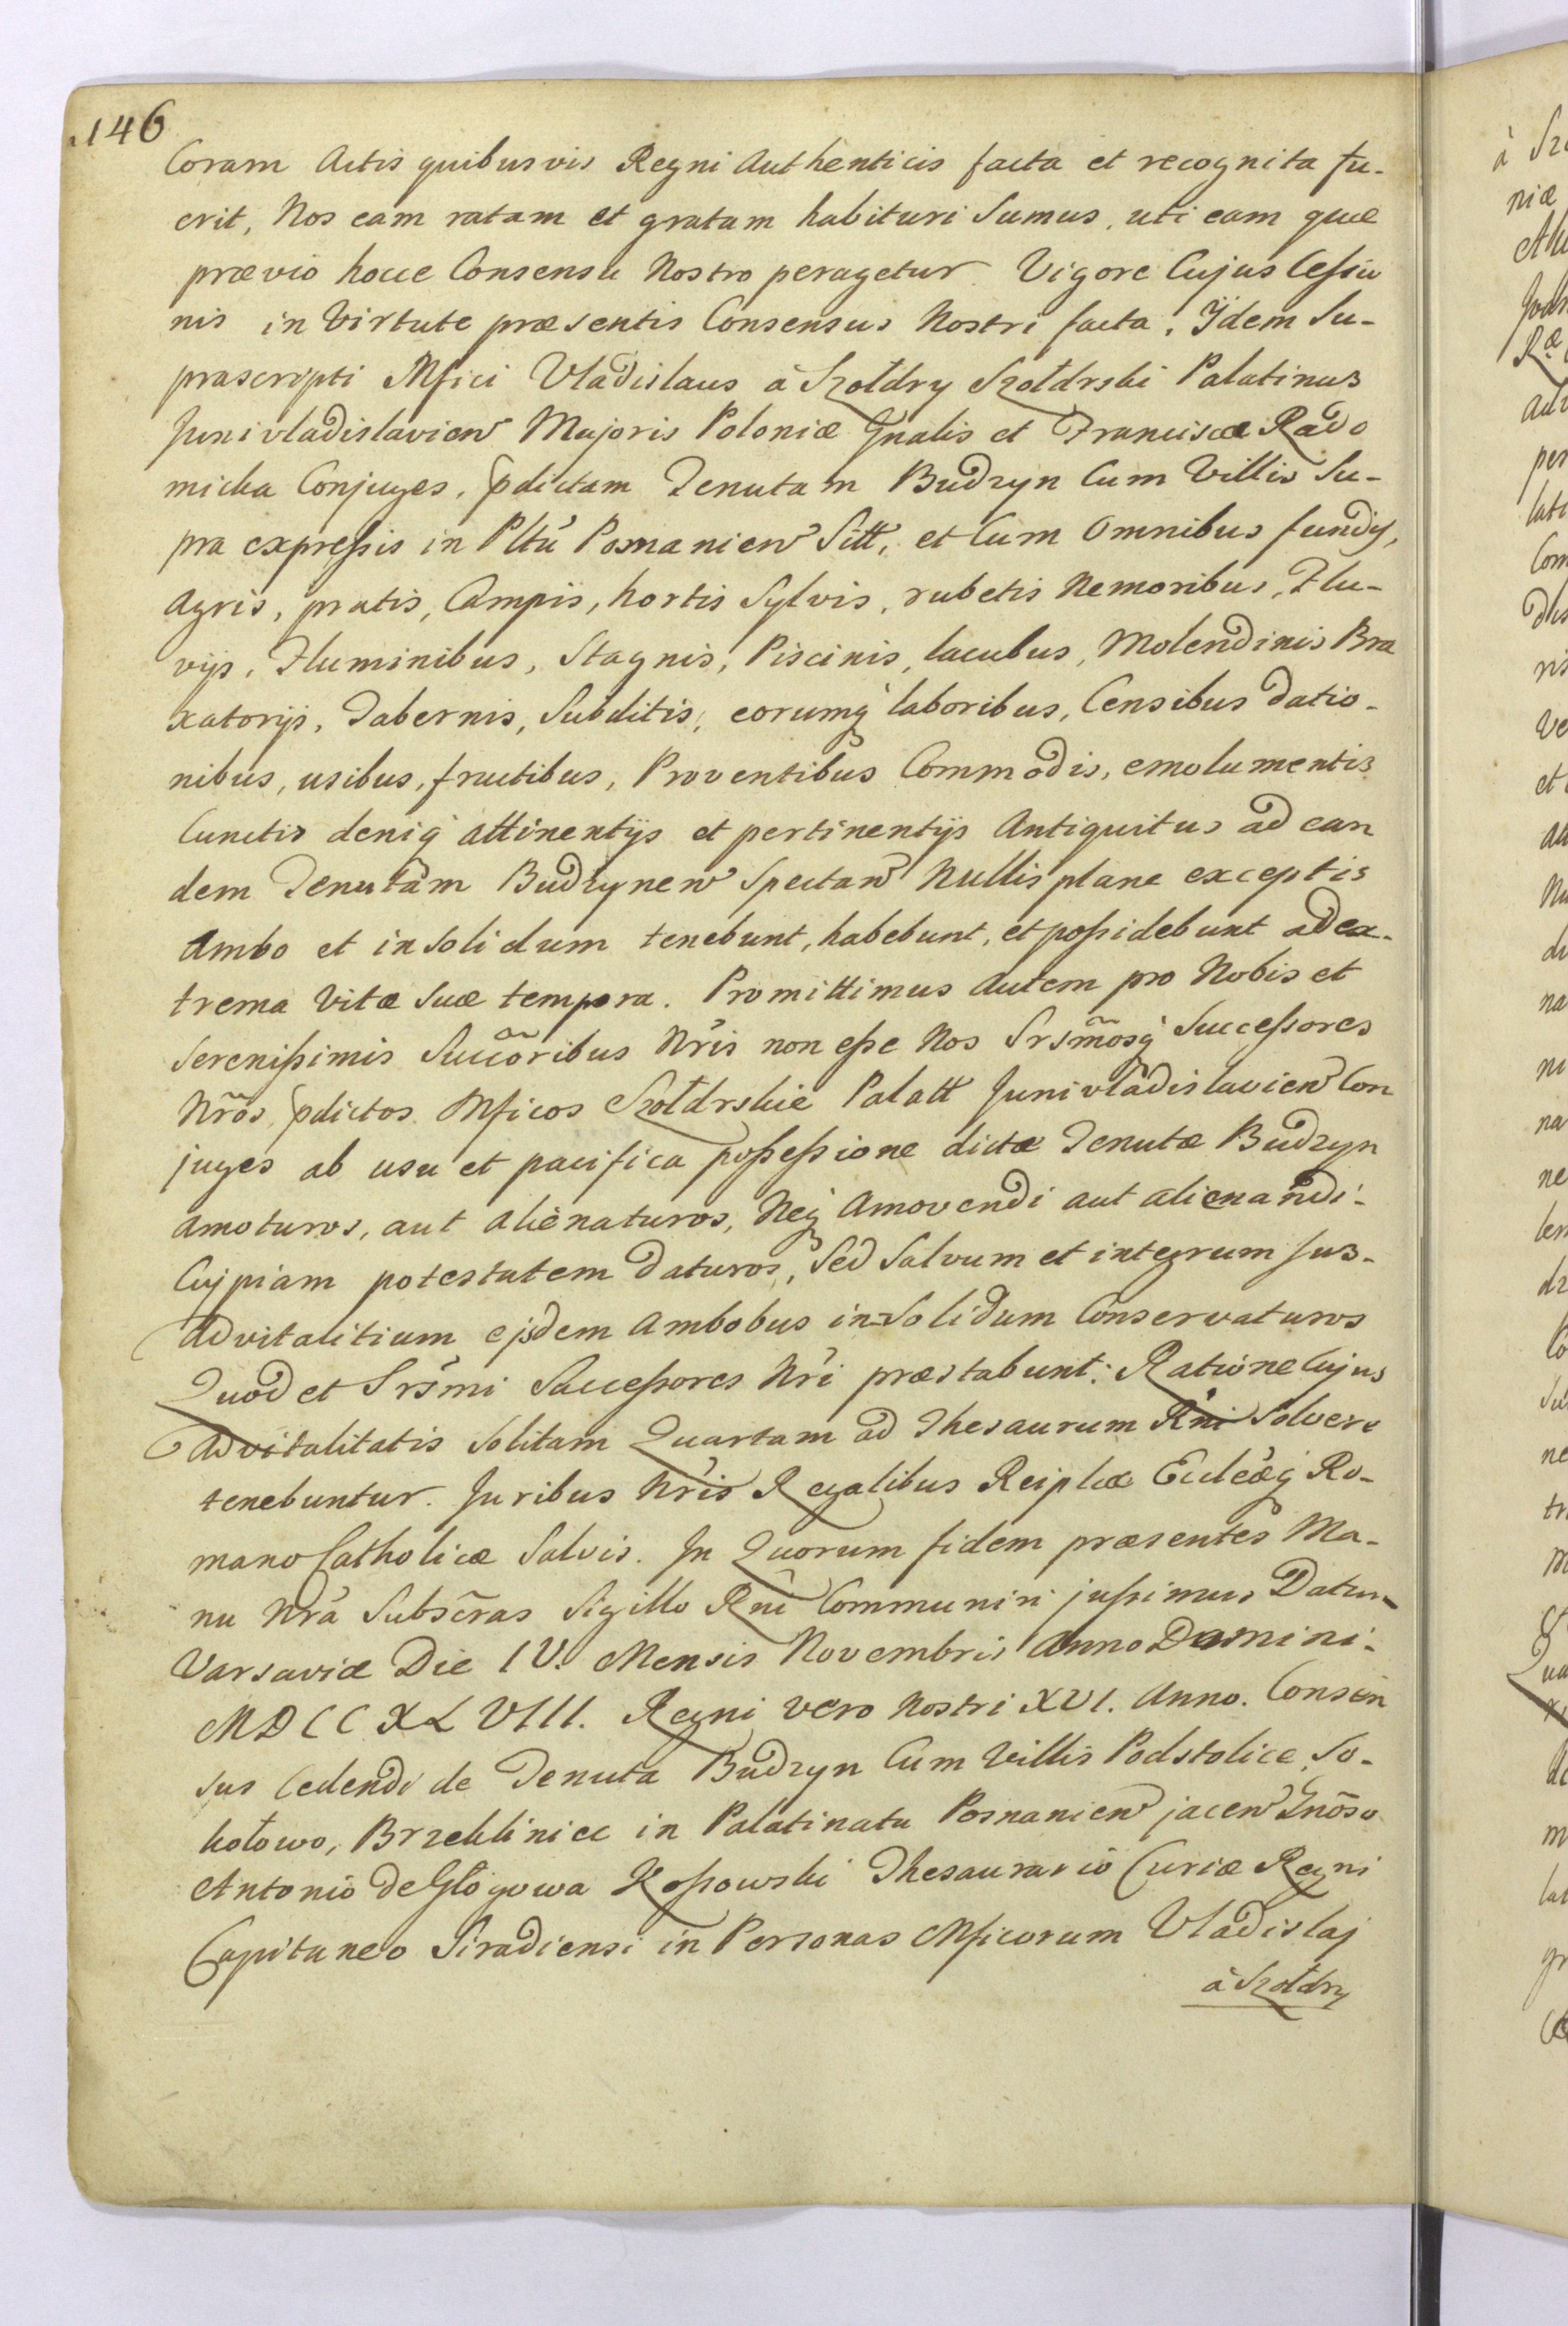 146
Coram Actis quibusvis Regni Authenticis facta et recognita fu-
erit, Nos eam ratam et gratam habituri Sumus, uti eam quæ
prævio hocce Consensu Nostro peragetur Vigore Cujus Cessio
nis in Virtute præsentis Consensus Nostri facta, Ijdem Su-
prascripti Mfici Vladislaus à Szołdry Szołdrski Palatinus
Junivladislavien Majoris Poloniæ Gnalis et Francisca Rado
micka Conjuges, pdictam Tenutam Budzyn Cum Villis Su-
pra expressis in Pltũ Posnanien Sitt, et Cum Omnibus fundis,
Agris, pratis, Campis, hortis Sylvis, rubetis Nemoribus, Flu-
vijs, Fluminibus, Stagnis, Piscinis, lacubus, Molendinis Bra
xatorijs, Tabernis, Subditis, eorumq laboribus, Censibus datio-
nibus, usibus, fructibus, Proventibus Commodis, emolumentis
Cunctis deniq attinentijs et pertinentijs Antiquitus ad ean
dem Tenutam Budzynen Spectan Nullis plane exceptis
Ambo et in solidum tenebunt, habebunt, et possidebunt ad ex-
trema Vitæ Suæ tempora. Promittimus Autem pro Nobis et
Serenissimis Succõribus Nris non esse Nos Srsmõsq Successores
Nrõs, pdictos Mficos Szołdrskie Palatt Junivladislavien Con
juges ab usu et pacifica possessione dictæ Tenutæ Budzyn
amoturos, aut alienaturos, Neq Amovendi aut alienandi
Cujpiam potestatem daturos, Sed Salvum et integrum Jus-
Advitalitium ejsdem Ambobus in Solidum Conservaturos
Quod et Srsmi Successores Nri præstabunt: Ratione Cujus
Advitalitatis Solitam Quartam ad Thesaurum Rni Solvere
tenebuntur. Juribus Nris Regalibus Reiplcæ Ecclêæq Ro-
mano Catholicæ Salvis. In Quorum fidem præsentes Ma-
nu Nrã Subscr̃as Sigillo Rni Communiri jussimus Datum
Varsaviæ Die IV. Mensis Novembris Anno Domini-
MDCCXLVIII. Regni Vero Nostri XVI. Anno. Consen
sus Cedendi de Tenuta Budzyn Cum Villis Podstolice, So-
kołowo, Brzekliniec in Palatinatu Posnanien jacen Gnõso
Antonio De Głogowa Kossowski Thesaurario Curiæ Regni
Capitaneo Siradiensi in Personas Mficorum Vladislaj
à Szołdry